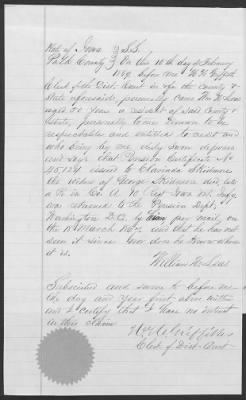 State of Iowa } S.S.
Polk County } On this 10th day of February
1889 before me
Clerk of the Dist Court in & for the County &
State aforesaid, personally came Wm H. Lees
aged 50 years a resident of said County &
State, personally to me known to be
respectable and entitled to credit and
who being by me duly sworn deposes
and says that Pension Certificate No
45124 issued to Clarinda Skidmore
the widow of George Skidmore decd, late
a in Co. A 10 Regt Iowa Inf
was returned to the Pension Dept,
Washington D.C. by mail on
the March and that he has not
seen it since nor does he know where
it is.
William H. Lees
Subscribed and sworn to before me
the day and year first above written
and I certify that I have no interest
in this Claim
Clerk of Dist Court